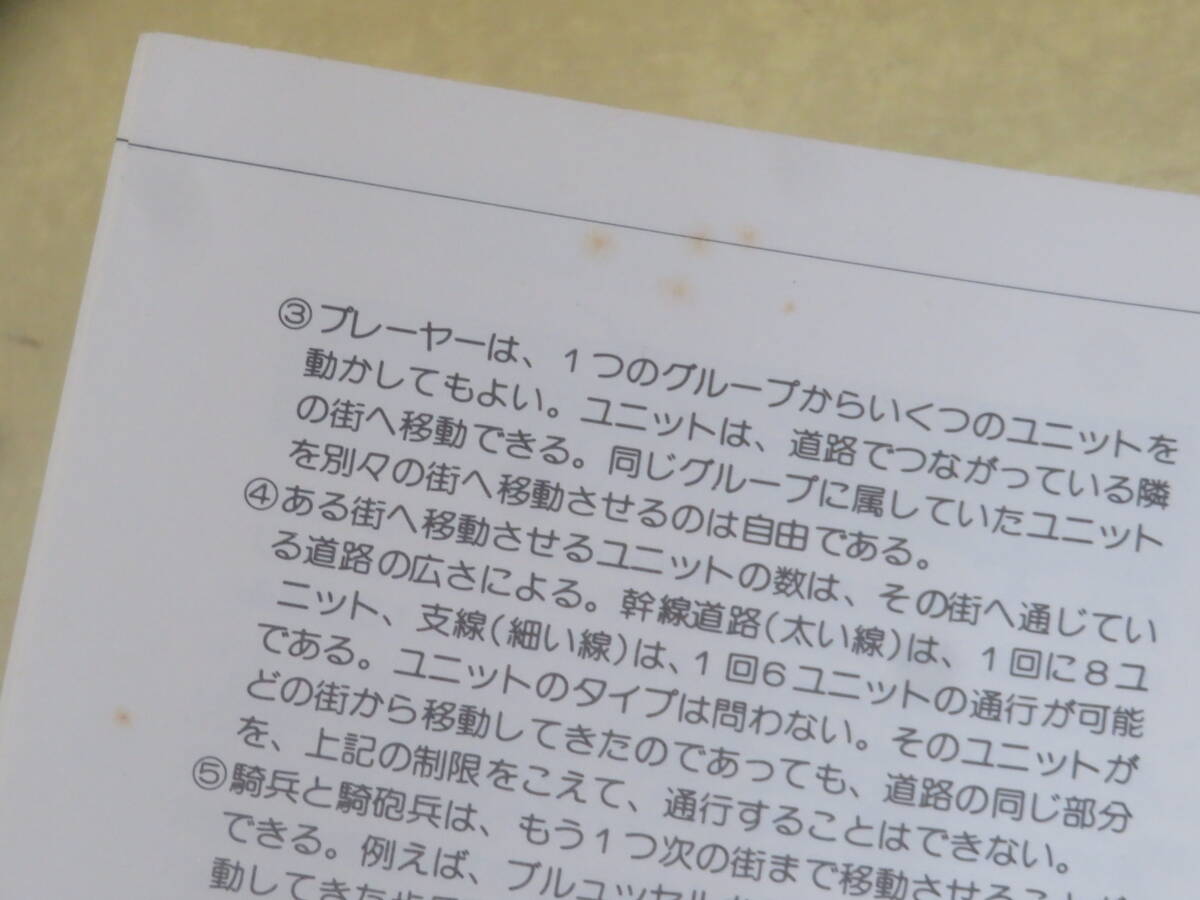 ③プレーヤーは、１つのグループからいくつのユニットを
動かしてもよい。ユニットは、道路でつながっている隣
の街へ移動できる。同じグループに属していたユニット
を別々の街へ移動させるのは自由である。
④ある街へ移動させるユニットの数は、その街へ通じてい
る道路の広さによる。幹線道路(太い線)は、１回に８ユ
ニット、支線(細い線)は、１回６ユニットの通行が可能
である。ユニットのタイプは問わない。そのユニットが
どの街から移動してきたのであっても、道路の同じ部分
を、上記の制限をこえて、通行することはできない。
⑤騎兵と騎砲兵は、もう１つ次の街まで移動させることが
できる。例えば、ブルュッセル
動してきた歩